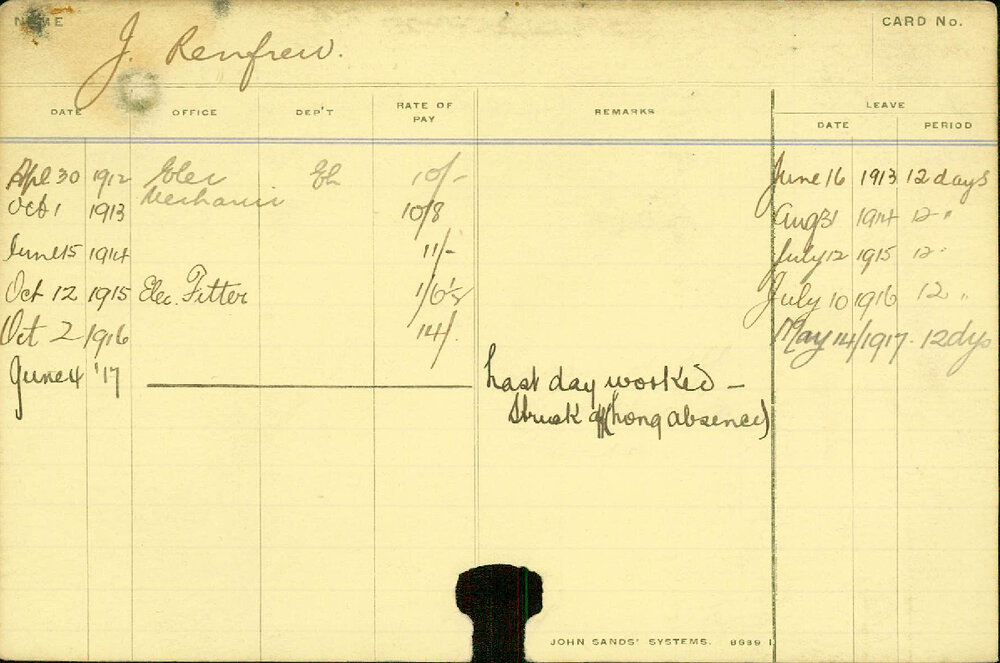 NAME
J. Renfrew.
CARD No.
DATE OFFICE DEP'T RATE OF PAY REMARKS LEAVE
DATE PERIOD
Apl 30 1912 Elec Eh 10/- June 16 1913 12 days
Mechanic
Oct 1 1913 10/8 Aug 31 1914 12 "
June 15 1914 11/- July 12 1915 12 "
Oct 12 1915 Elec. Fitter 1/6½ July 10 1916 12 "
Oct 2 1916 14/. May 14/1917. 12 dys
June 4 '17 Last day worked –
Struck off (Long absence)
JOHN SANDS' SYSTEMS. 8639